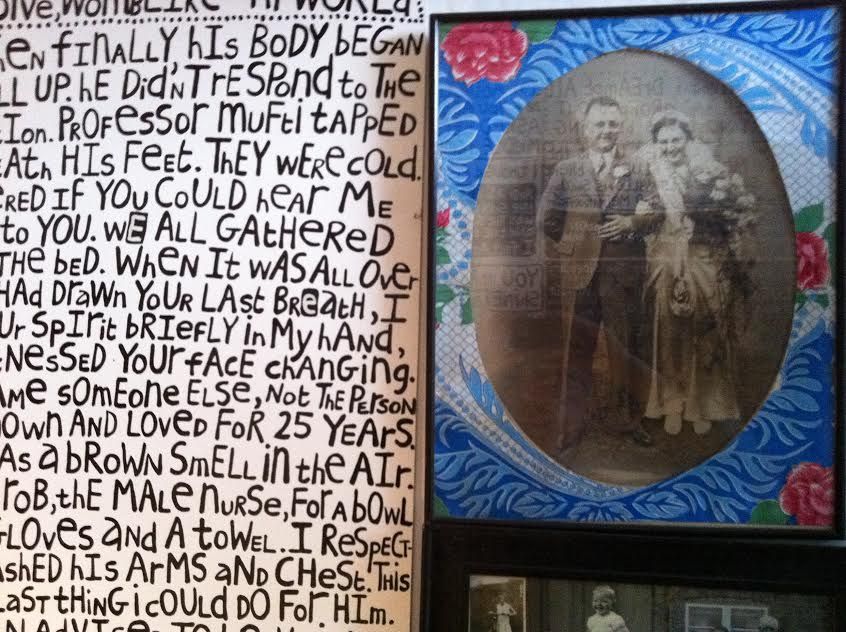 WOMBLIKE
EN fINALLY hIS BODY bEGAN
LL UP. hE DiD'NT rESPOnd to THe
Ion. PROFessor mufti tAPPED
EATh HIS FeeT. ThEY wEre cOLD.
RED IF YOU COULD hEAr ME
to YOU. wE ALL GAtHeReD
THe bED. WhEN It wAS ALL Over
HAD DrAwn YoUR LAst BrEatH, I
Ur SpIrit bRIefLY in My hAND,
NeSSED YOUr fACE cHAnging.
AMe sOmEone ELse, Not ThE PErsON
OWn AND LOveD FoR 25 YEARS.
As a bROWN SmELL in the AIr.
roB, thE MALe nURSe, For A bOwL
GLOVes anD A toWEL. I ResPECt-
ShED hIS ArMS aND CHeSt. This
LaST tHiNG i cOUlD DO For HIm.